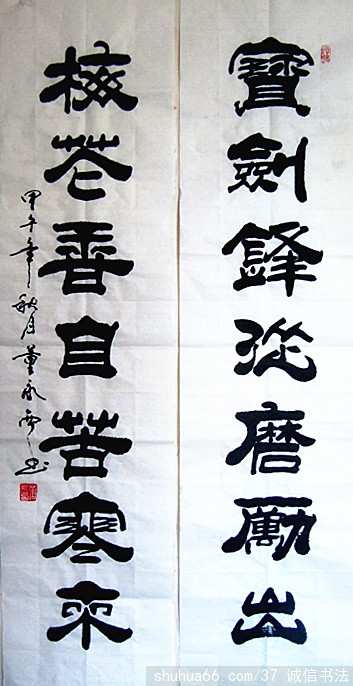 寶劍鋒從磨勵出
梅花香自苦寒來
甲午年秋月董永书
shuhua66.com/37 诚信书法